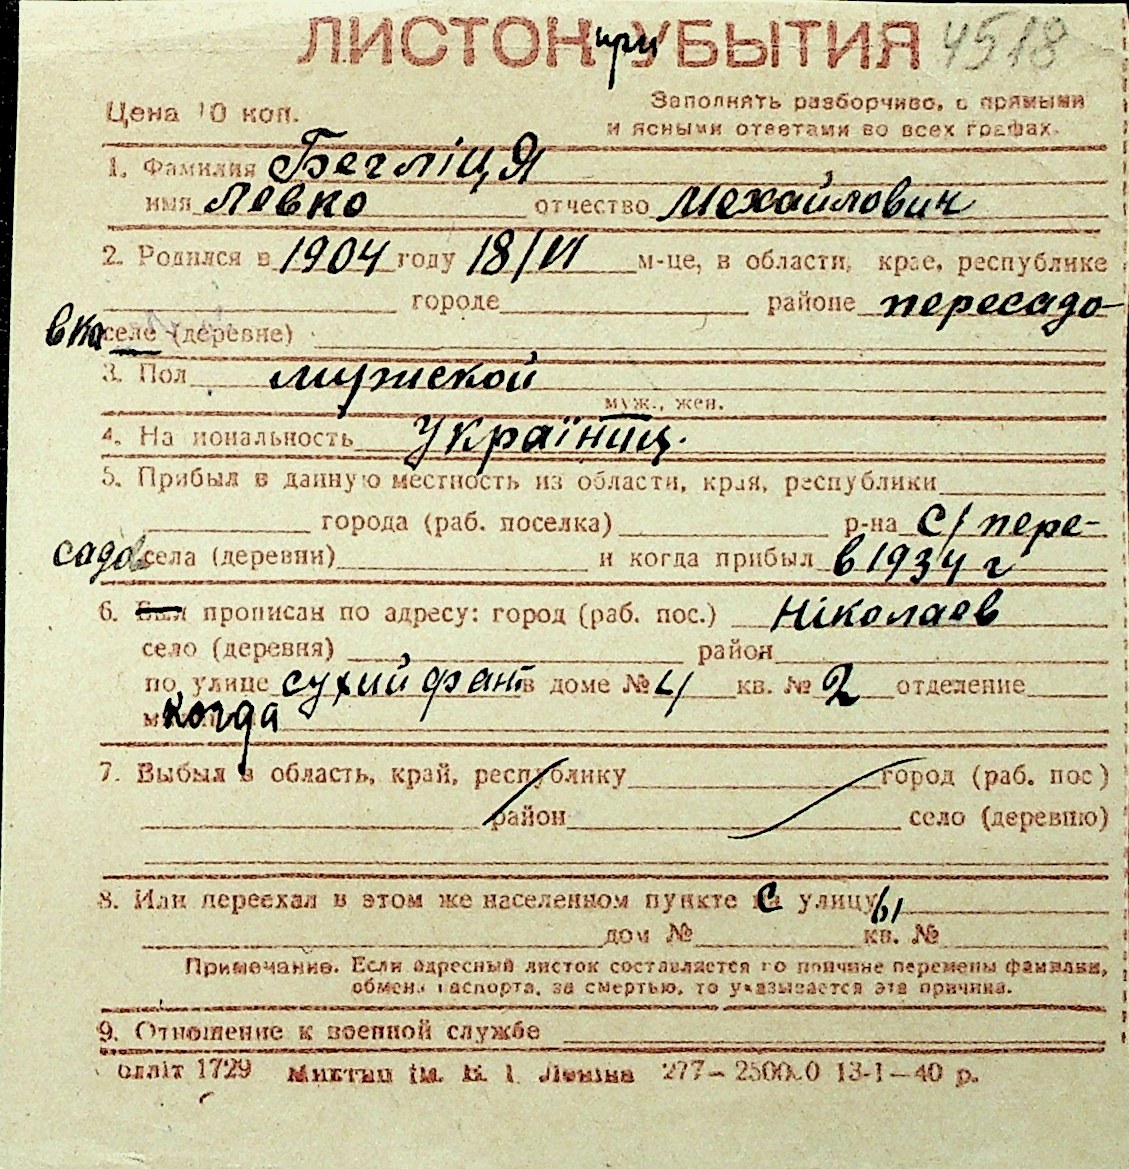 ЛИСТОК при УБЫТИЯ 4518
Цена 10 коп.
Заполнять разборчиво, с прямыми
и ясными ответами во всех графах.
1. Фамилия Бегліця
имя Левко отчество Мехайлович
2. Родился в 1904 году 18/VI м-це, в области, крае, республике
городе районе пересадо-
вка селе (деревне)
3. Пол мужской
муж., жен.
4. Национальность Україниц.
5. Прибыл в данную местность из области, края, республики
города (раб. поселка) р-на с/пере-
садов села (деревни) и когда прибыл в 1934 г
6. Был прописан по адресу: город (раб. пос.) Ніколаев
село (деревня) район
по улице сухий фонт в доме № 4 кв. № 2 отделение
когда
7. Выбыл в область, край, республику город (раб. пос)
район село (деревню)
8. Или переехал в этом же населенном пункте с улицы
дом № кв. №
Примечание. Если адресный листок составляется по причине перемены фамилии,
обмена паспорта, за смертью, то указывается эта причина.
9. Отношение к военной службе
олліт 1729 Миктип ім. В. І. Леніна 277— 13-I—40 р.